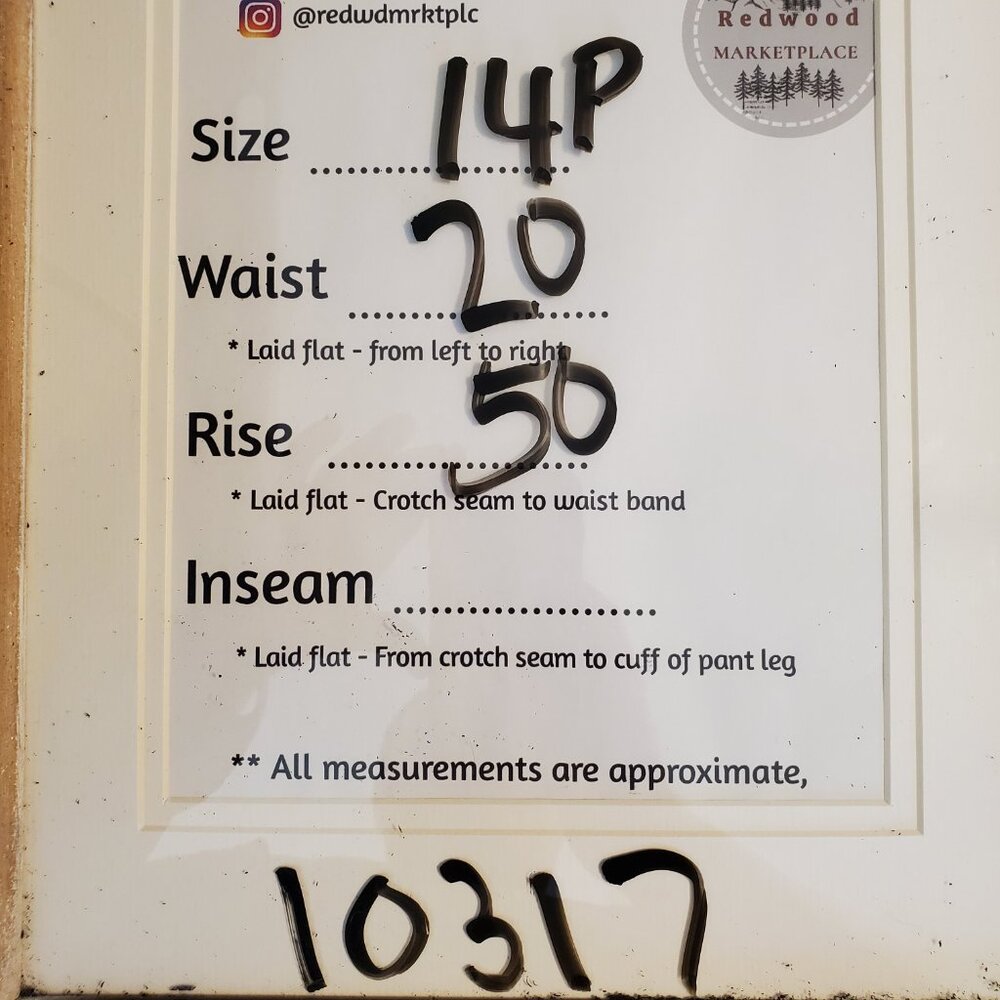 @redwdmrktplc
Redwood
MARKETPLACE
Size .......................... 14P
Waist .......................... 20
* Laid flat - from left to right
Rise .......................... 50
* Laid flat - Crotch seam to waist band
Inseam ..........................
* Laid flat - From crotch seam to cuff of pant leg
** All measurements are approximate,
10317